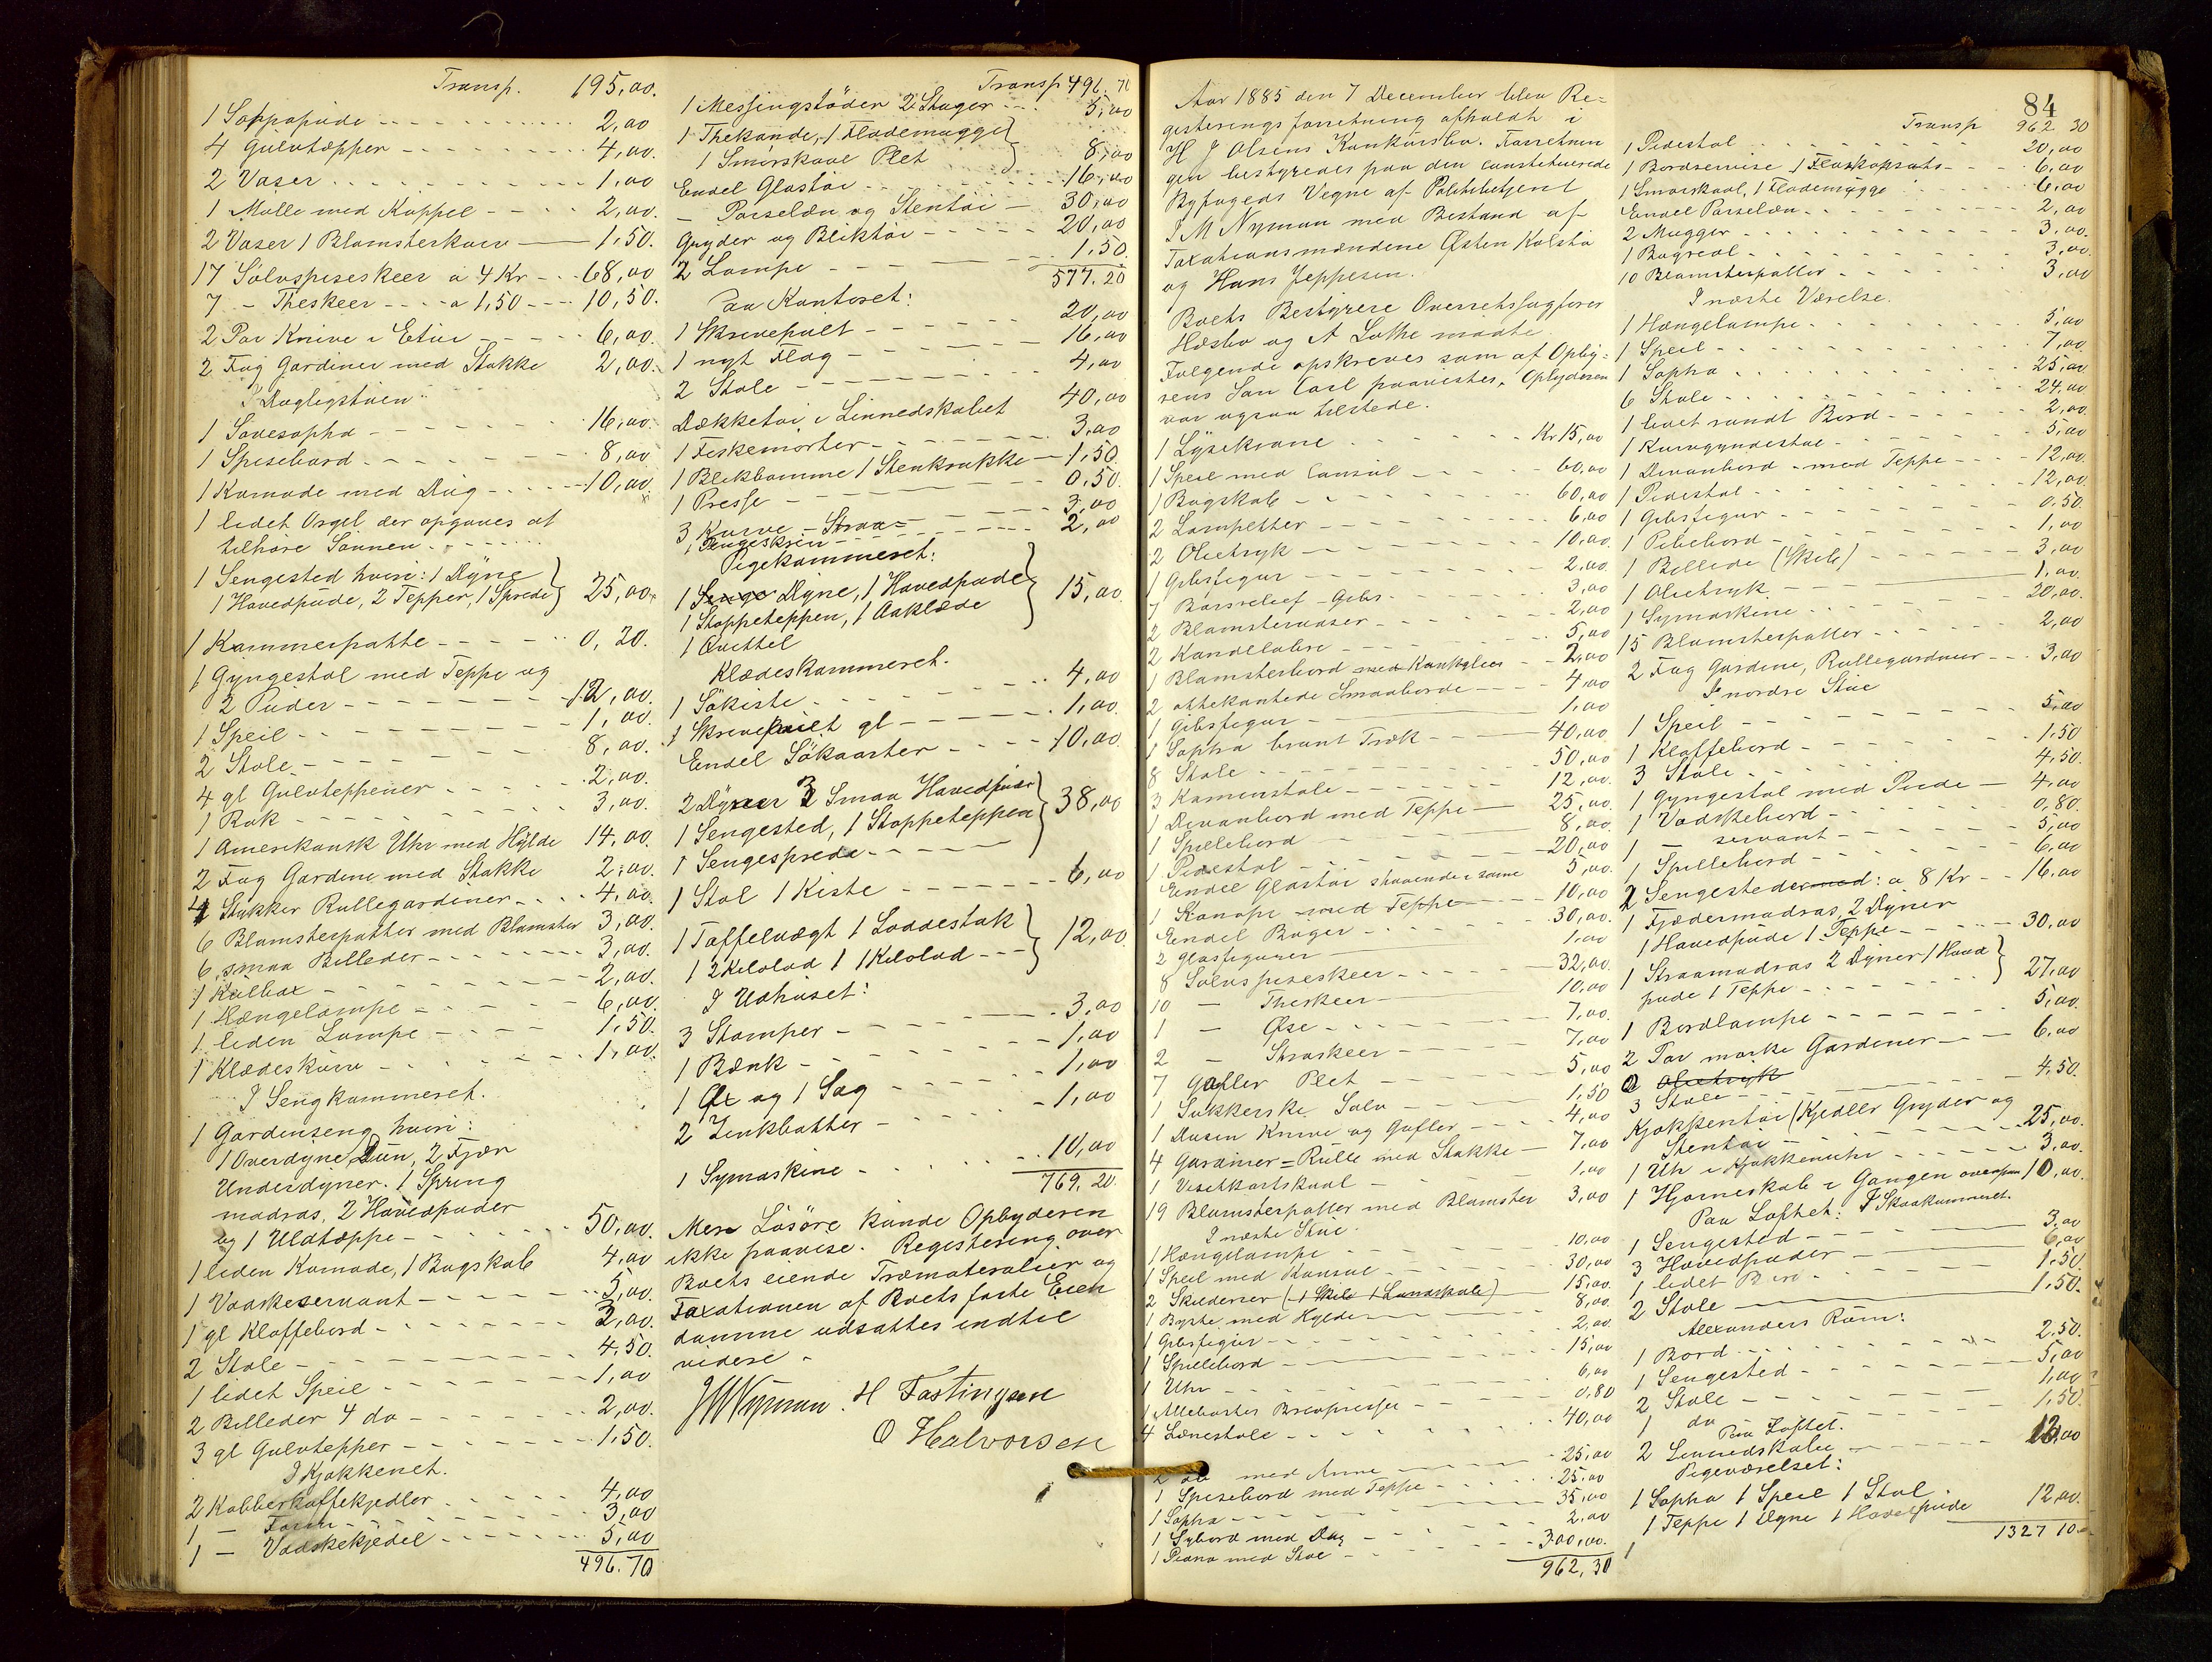 Transp. 195,00.
1 Soffapude 2,00
4 Gulvtæpper 4,00.
2 Vaser 1,00
1 Mølle med Koppel 2,00.
2 Vaser 1 Blomsterkurv 1,50.
17 Sølvspiseskeer a 4 Kr 68,00
7 – Theskeer a 1,50 10,50.
2 Par Knive i Etui 6,00.
2 Fag Gardiner med Stokke 2,00.
I Dagligstuen.
1 Sovesopha 16,00.
1 Spisebord 8,00
1 Komode med Dug 10,00.
1 lidet Orgel der opgaves at
tilhøre Sønnen
1 Sengested hvori: 1 Dyne
1 Hovedpude, 2 Tepper, 1 Sprede 25,00.
1 Kammerpotte 0,20.
1 Gyngestol med Teppe og
2 Puder 12,00.
1 Speil 1,00.
2 Stole 8,00.
4 gl Gulvteppener 2,00.
1 Rok 3,00.
1 Amerikansk Uhr med Hylde 14,00.
2 Fag Gardine med Stokke 2,00.
4 Stykker Rullegardiner 4,00.
6 Blomsterpotter med Blomster 3,00.
6 smaa Billeder 3,00.
1 Kulbox 2,00.
1 Hængelampe 6,00.
1 liden Lampe 1,50.
1 Klædeskurv 1,00.
I Sengkammeret.
1 Gardinseng hvori:
1 Overdyne Dun, 2 Fjær
Underdyner. 1 Spring
madras, 2 Hovedpuder
og 1 Uldtæppe 50,00.
1 liden Komode, 1 Bogskab 4,00
1 Vaskeservant 5,00.
1 gl Klaffebord 2,00.
2 Stole 4,50.
1 lidet Speil 1,00
2 Billeder 4 do 2,00.
3 gl Gulvtepper 1,50.
I Kjøkkenet.
2 Kobberkaffekjedler 4,00
1 – 3,00
1 – Vadskekjedel 5,00
496.70
Transp 496.70
1 Messingstøder 2 Stager 5,00
1 Thekande, 1 Flødemugge
1 Smørskaal Plet 8,00
Endel Glastøi 16,00
– Porselæn og Stentøi 30,00
Gryder og Bliktøi 20,00
2 Lampe 1,50.
577.20
Paa Kontoret:
1 Skrivepult 20,00
1 nyt Flag 16,00
2 Stole 4,00
Dækketøi i Linnedskabet 40,00
1 Feskemorter 3,00
1 Blikbomme 1 Stenkrukke 1,50.
1 Presse 0,50.
3 Kurve – Straa 3,00
1 Sengeskrin 2,00
Pigekammeret:
1 Dyne, 1 Hovedpude
1 Stoppeteppen, 1 Aaklæde 15,00.
1 Qvittel
Klædeskammeret.
1 Søkiste 4,00
1 Skrivepult gl 1,00.
Endel Søkaarter 10,00.
2 Dyner 3 Smaa Hovedpuder
1 Sengested, 1 Stoppeteppen 38,00
1 Sengesprede
1 Stol 1 Kiste 6,00
1 Taffelvægt 1 Loddestok
1 2 Kilolod 1 1 Kilolod 12,00.
I Udhuset:
3 Stamper 3,00
1 Bænk 1,00
1 Øx og 1 Sag 1,00
2 Zinkbøtter 1,00
1 Symaskine 10,00
769.20.
Mere Løsøre kunde Opbyderen
ikke paavise. Registering over
Boets eiende Træmaterialier og
Taxationen af Boets faste Eien
domme udsattes indtil
videre –
JMNyman. H Fastingsen
O Halvorsen
84
Aar 1885 den 7 December blev Re=
gisteringsforretning afholdt i
H J Olsens Konkursbo. Forretnin
gen bestyredes paa den constituerede
Byfogeds Vegne af Politibetjent
J M Nyman med Bistand af
Taxationsmændene Østen Kolstø
og Hans Jeppesen.
Boets Bestyrere Overretssagfører
Hæsbo og A Lothe mødte.
Følgende opskreves som af Opby=
rens Søn Carl paavistes. Opbyderen
var ogsaa tilstede.
1 Lysekrone Kr 15,00
1 Speil med Consol 60,00
1 Bogskab 60,00
2 Lampetter 6,00
2 Olietryk 10,00.
1 Gibsfigur 2,00.
7 Basrelief – Gibs 3,00
2 Blomstervaser 2,00
2 Kandelabre 5,00
1 Blomsterbord med Konkylier 2,00
2 ottekantede Smaaborde 4,00
1 Gibsfigur 1,00
1 Sopha brunt Træk 40,00
8 Stole 50,00
3 Kamenstole 12,00.
1 Divanbord med Teppe 25,00.
1 Spillebord 8,00.
1 Pidestal 20,00
Endel Glastøi staaende i samme 5,00.
1 Kanape med Teppe 10,00
Endel Bøger 30,00.
2 Glasfigurer 1,00
8 Sølvspiseskeer 32,00.
10 – Theskeer 10,00
1 – Øse 7,00.
2 – Strøskeer 7,00
7 Gafler Plet 5,00
1 Sukkerske Sølv 1,50
1 Dusin Knive og Gafler 4,00
4 Gardiner=Rulle med Stokke 7,00
1 Visitkortskaal 1,00
19 Blomsterpotter med Blomster 3,00
I næste Stue.
1 Hængelampe 10,00
1 Speil med Konsol 30,00
2 Skilderier (1 Skib 1 Landskab) 15,00.
1 Byste med Hylde 8,00.
1 Gibsfigur 2,00
1 Spillebord 15,00
1 Uhr 6,00
1 Allebaster Brevpresse 0,80
4 Lænestole 40,00
2 do med Arme 25,00
1 Spisebord med Teppe 25,00
1 Sopha 35,00
1 Sybord med Dug 2,00
1 Piano med Stol 300,00.
962,30
Transp 962 30
1 Pidestal 20,00
1 Bordservise 1 Flaskopsats 6,00
1 Smørskaal, 1 Flødemugge 6,00
Endel Porselæn 2,00
2 Mugger 3,00.
1 Bogreol 3,00.
10 Blomsterpotter 3,00
I næste Værelse.
1 Hængelampe 5,00
1 Speil 7,00.
1 Sopha 25,00
6 Stole 24,00
1 lidet rundt Bord 2,00.
1 Kurvgyndestol 5,00
1 Divanbord – med Teppe 12,00.
1 Pidestal 12,00.
1 Gibsfigur 0.50.
1 Pibebord 1,00
1 Billede (Skib) 3,00
1 Olietryk 1,00.
1 Symaskine 20,00.
15 Blomsterpotter 2,00
2 Fag Gardine, Rullegardiner 3,00
I nordre Stue
1 Speil 5,00
1 Klaffebord 1.50
3 Stole 4,50.
1 Gyngestol med Pude 4,00
1 Vadskebord 0,80.
1 – servant 5,00
1 Spillebord 6,00
2 Sengesteder: a 8 Kr 16,00
1 Fjædermadras, 2 Dyner
1 Hovedpude 1 Teppe 30,00
1 Straamadras 2 Dyner 1 Hoved
pude 1 Teppe 27,00
1 Bordlampe 5,00.
2 Par mørke Gardiner 6,00
2 Olietryk
3 Stole 4,50.
Kjøkkentøi (Kjedler Gryder og
Stentøi 25,00.
1 Uhr i Kjøkkenuhr 3,00.
1 Hjørneskab i Gangen ovenpaa 10,00.
Paa Loftet: I Skraakammeret.
1 Sengested 3,00
3 Hovedpuder 6,00
1 lidet Bord 1.50.
2 Stole 1.50.
Alexanders Rum:
1 Bord 2,50.
1 Sengested 5,00
2 Stole 1,00
1 do 1,50
Paa Loftet.
2 Linnedskabe
Pigeværelset:
1 Sopha 1 Speil 1 Stol
1 Teppe 1 Dyne 1 Hovedpude 12,00.
1327 10